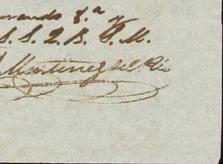 mando q.ª y
S. S. Q. B. S. M.
Martinez del Rio